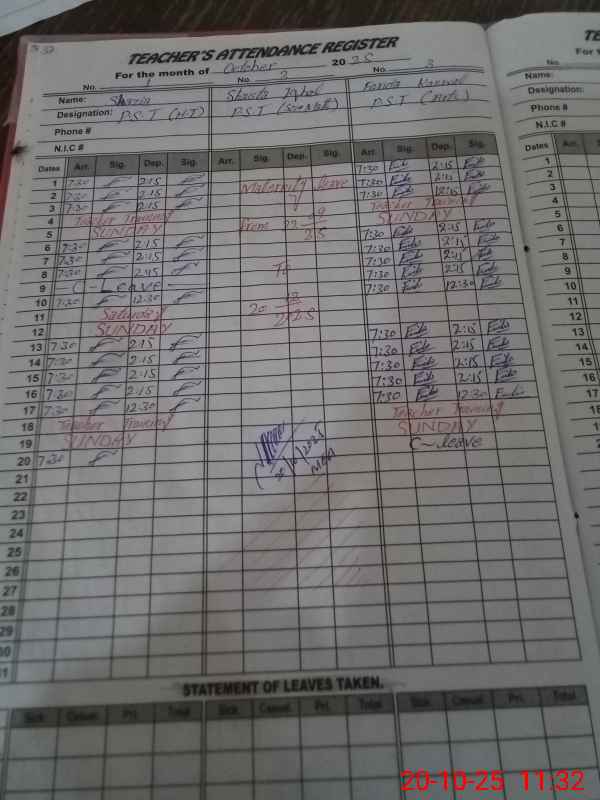 TEACHER'S ATTENDANCE REGISTER
For the month of October 2025
No. 1 No. 2 No. 3
Name: Shazia Shaista Iqbal Farida Kanwal
Designation: P.S.T (H.T) P.S.T P.S.T
Phone #
N.I.C #
Dates Arr. Sig. Dep. Sig. Arr. Sig. Dep. Sig. Arr. Sig. Dep. Sig.
1 7:30 2:15 Maternity leave 7:30 2:15
2 7:30 2:15 7:30 2:15
3 7:30 2:15 7:30
4 Teacher Training Teacher Training
5 SUNDAY From 22 SUNDAY
6 7:30 2:15 25 7:30 2:15
7 7:30 2:15 7:30 2:15
8 7:30 2:15 To 7:30 2:15
9 C-Leave 7:30 2:15
10 7:30 12:30 20 7:30 12:30
11 Saturday 2025
12 SUNDAY
13 7:30 2:15 7:30 2:15
14 7:30 2:15 7:30 2:15
15 7:30 2:15 7:30 2:15
16 7:30 2:15 7:30 2:15
17 7:30 12:30 7:30 12:30
18 Teacher Training Teacher Training
19 SUNDAY SUNDAY
20 7:30 20/10/2025 C-leave
21 MEA
22
23
24
25
26
27
28
29
30
31
STATEMENT OF LEAVES TAKEN.
Sick Casual Pri. Total Sick Casual Pri. Total Sick Casual Pri. Total
TE
For t
No.
Name:
Designation:
Phone #
N.I.C #
Dates Arr.
1
2
3
4
5
6
7
8
9
10
11
12
13
14
15
16
17
18
20-10-25 11:32